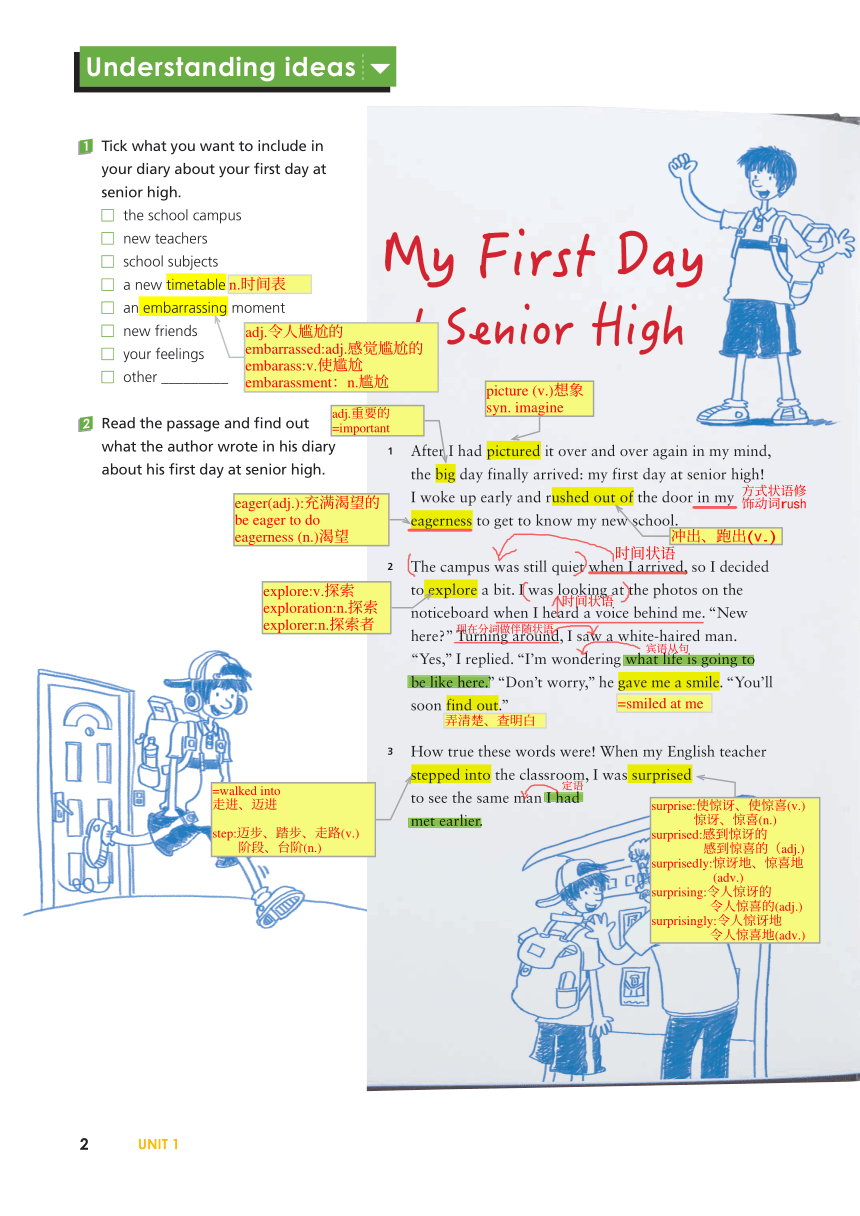 Understanding ideas
1 Tick what you want to include in
your diary about your first day at
senior high.
the school campus
new teachers
school subjects
a new timetable n.时间表
an embarrassing moment
new friends
your feelings
other _________
adj.令人尴尬的
embarrassed:adj.感觉尴尬的
embarass:v.使尴尬
embarassment：n.尴尬
2 Read the passage and find out
what the author wrote in his diary
about his first day at senior high.
My First Day
Senior High
picture (v.)想象
syn. imagine
adj.重要的
=important
1 After I had pictured it over and over again in my mind,
the big day finally arrived: my first day at senior high!
I woke up early and rushed out of the door in my
eagerness to get to know my new school.
方式状语修
饰动词rush
eager(adj.):充满渴望的
be eager to do
eagerness (n.)渴望
冲出、跑出(v.)
时间状语
2 The campus was still quiet when I arrived, so I decided
to explore a bit. I was looking at the photos on the
时间状语
noticeboard when I heard a voice behind me. “New
现在分词做伴随状语
here?” Turning around, I saw a white-haired man.
宾语从句
“Yes,” I replied. “I’m wondering what life is going to
be like here.” “Don’t worry,” he gave me a smile. “You’ll
soon find out.”
explore:v.探索
exploration:n.探索
explorer:n.探索者
=smiled at me
弄清楚、查明白
3 How true these words were! When my English teacher
stepped into the classroom, I was surprised
定语
to see the same man I had
met earlier.
=walked into
走进、迈进
step:迈步、踏步、走路(v.)
阶段、台阶(n.)
surprise:使惊讶、使惊喜(v.)
惊讶、惊喜(n.)
surprised:感到惊讶的
感到惊喜的（adj,)
surprisedly:惊讶地、惊喜地
(adv.)
surprising:令人惊讶的
令人惊喜的(adj.)
surprisingly:令人惊讶地
令人惊喜地(adv.)
2 UNIT 1